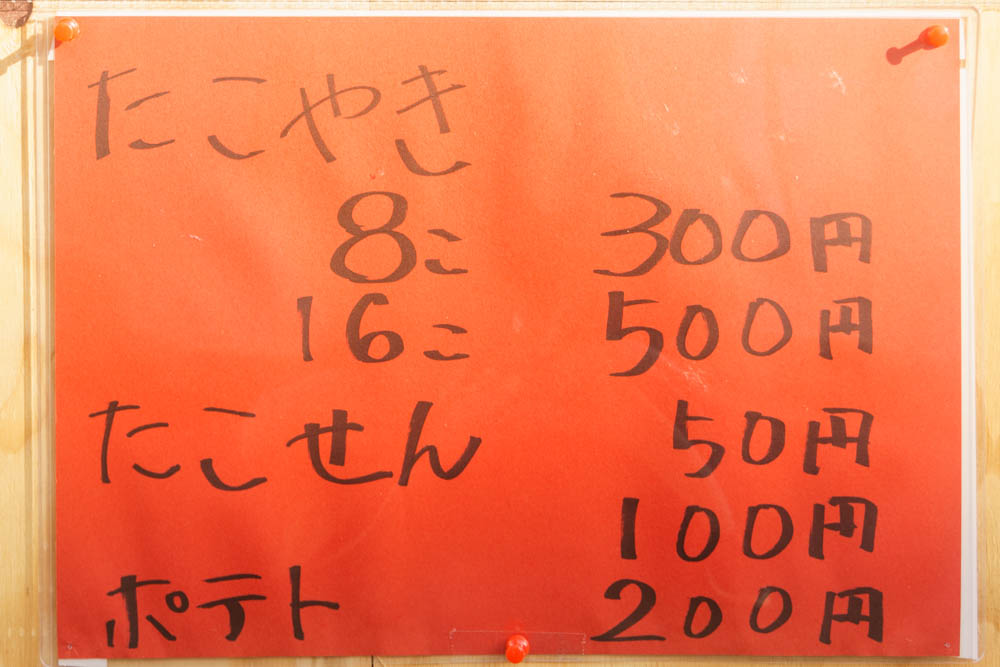 たこやき
8こ 300円
16こ 500円
たこせん 50円
100円
ポテト 200円